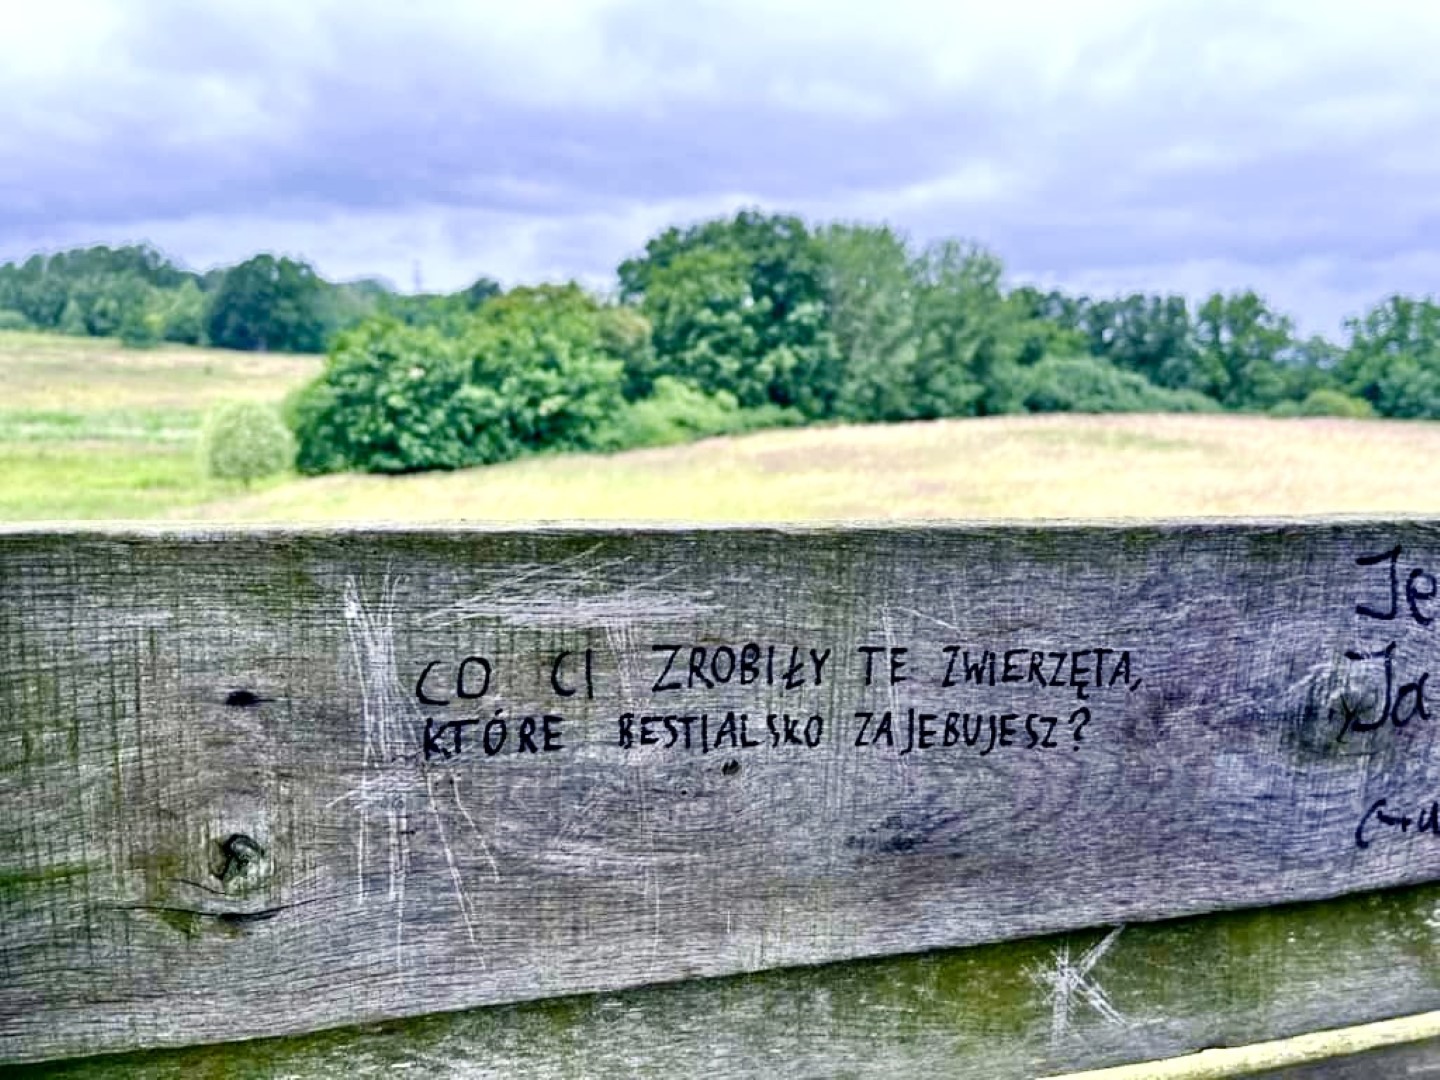 CO CI ZROBIŁY TE ZWIERZĘTA,
KTÓRE BESTIALSKO ZAJEBUJESZ?